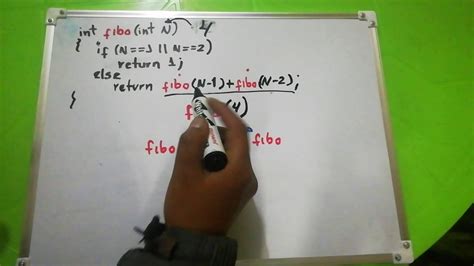 int fibo(int N) 4
{ if (N==1 || N==2)
return 1;
else
return fibo(N-1)+fibo(N-2);
}
(4)
fibo fibo